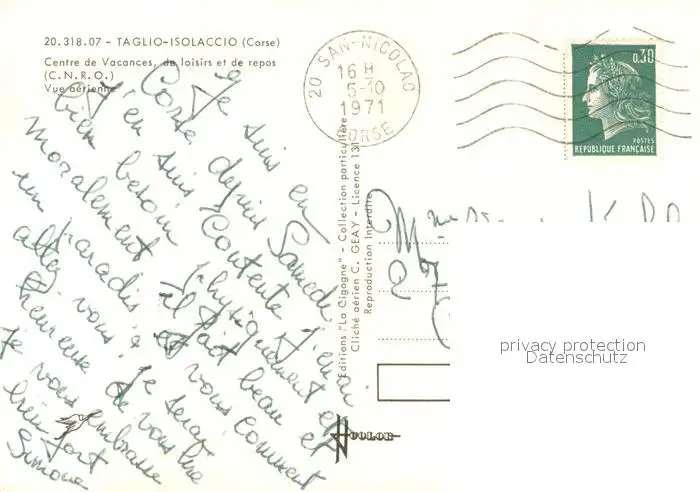 20.318.07 - TAGLIO-ISOLACCIO (Corse)
Centre de Vacances, de loisirs et de repos
(C.N.R.O.)
Vue aérienne
Je suis en
Corse depuis Samedi
J'en suis contente j'en ai
bien besoin physiquement et
moralement il fait beau et
un paradis
allez vous ? Je serai
heureuse de vous lire
Je vous embrasse
bien fort
Simone
et vous comment
20 SAN-NICOLAO
16 H
5-10
1971
CORSE
0,30
POSTES
REPUBLIQUE FRANÇAISE
Editions "La Cigogne" - Collection particulière
Cliché aérien C. GEAY - Licence 131
Reproduction Interdite
Mme
privacy protection
Datenschutz
COLOR